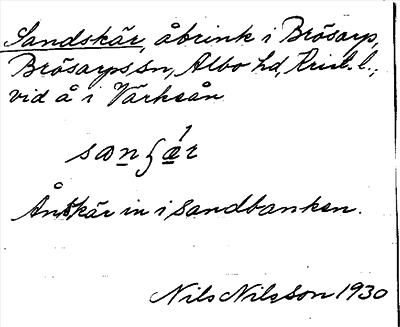 Sandskär, åbrink i Brösarp,
Brösarps sn, Albo hd, Krist. l.;
vid å i Verkeån
Ån skär in i sandbanken.
Nils Nilsson 1930